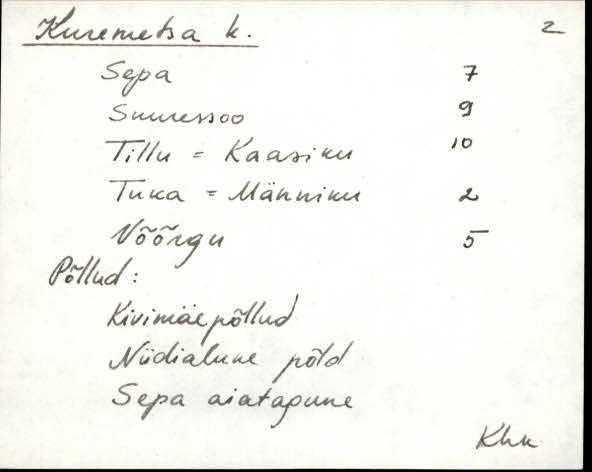 Kuremetsa k. 2
Sepa 7
Suuressoo 9
Tillu = Kaasiku 10
Tuka = Männiku 2
Võõrgu 5
Põllud:
Kivimäepõllud
Niidialune põld
Sepa aiatagune
Khk